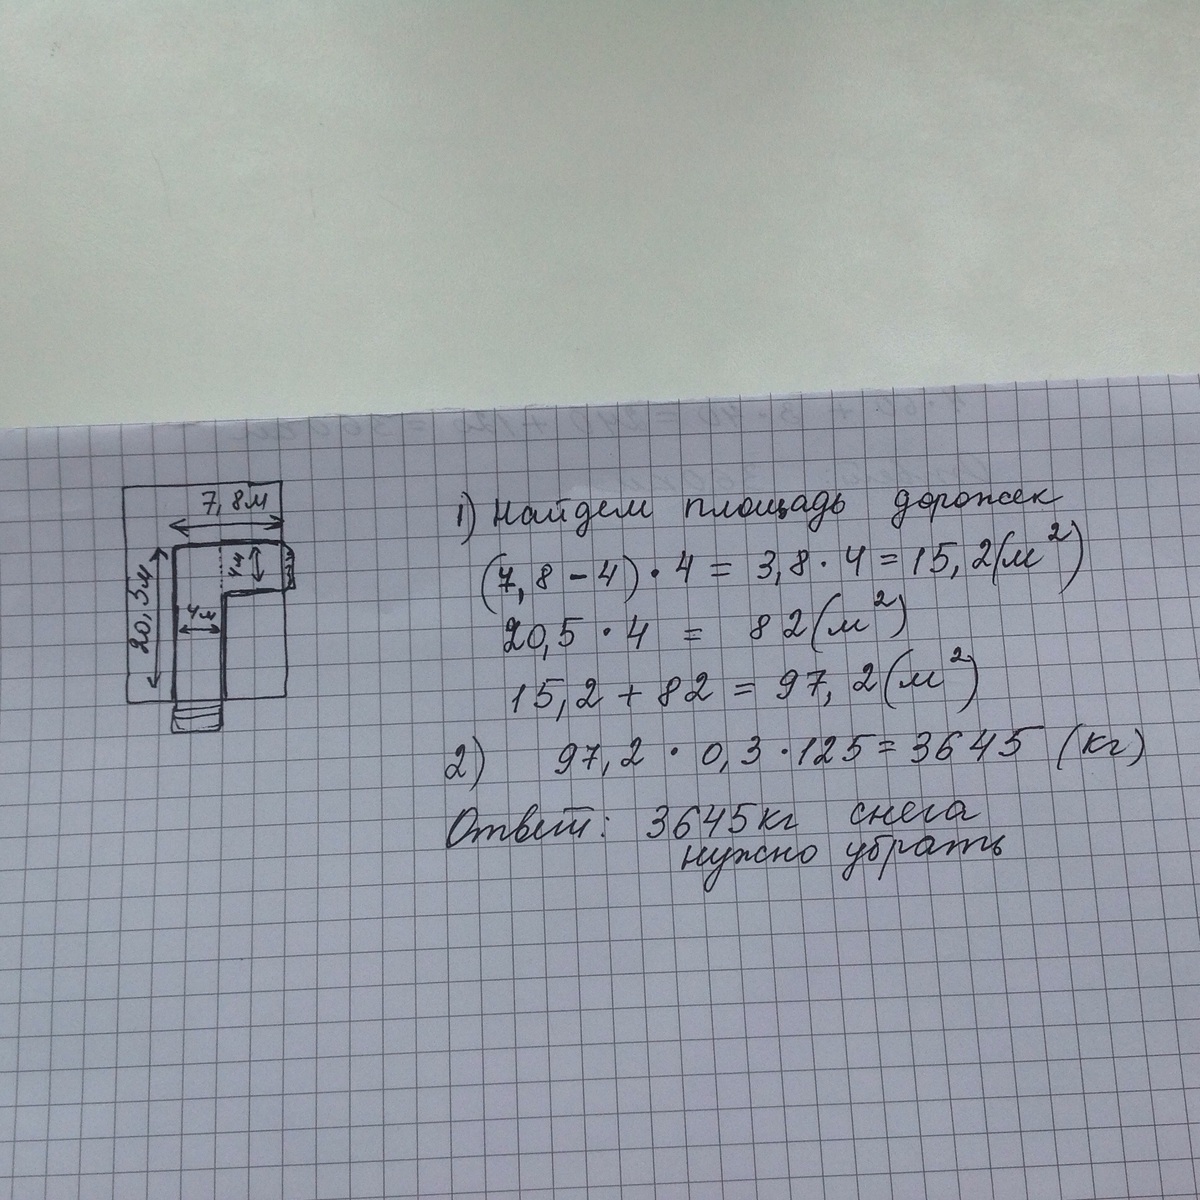 7,8м
20,5м
4м
4м
1) Найдем площадь дорожек
(7,8-4)·4=3,8·4=15,2(м²)
20,5·4 = 82(м²)
15,2+82=97,2(м²)
2) 97,2·0,3·125=3645 (кг)
Ответ: 3645кг снега
нужно убрать